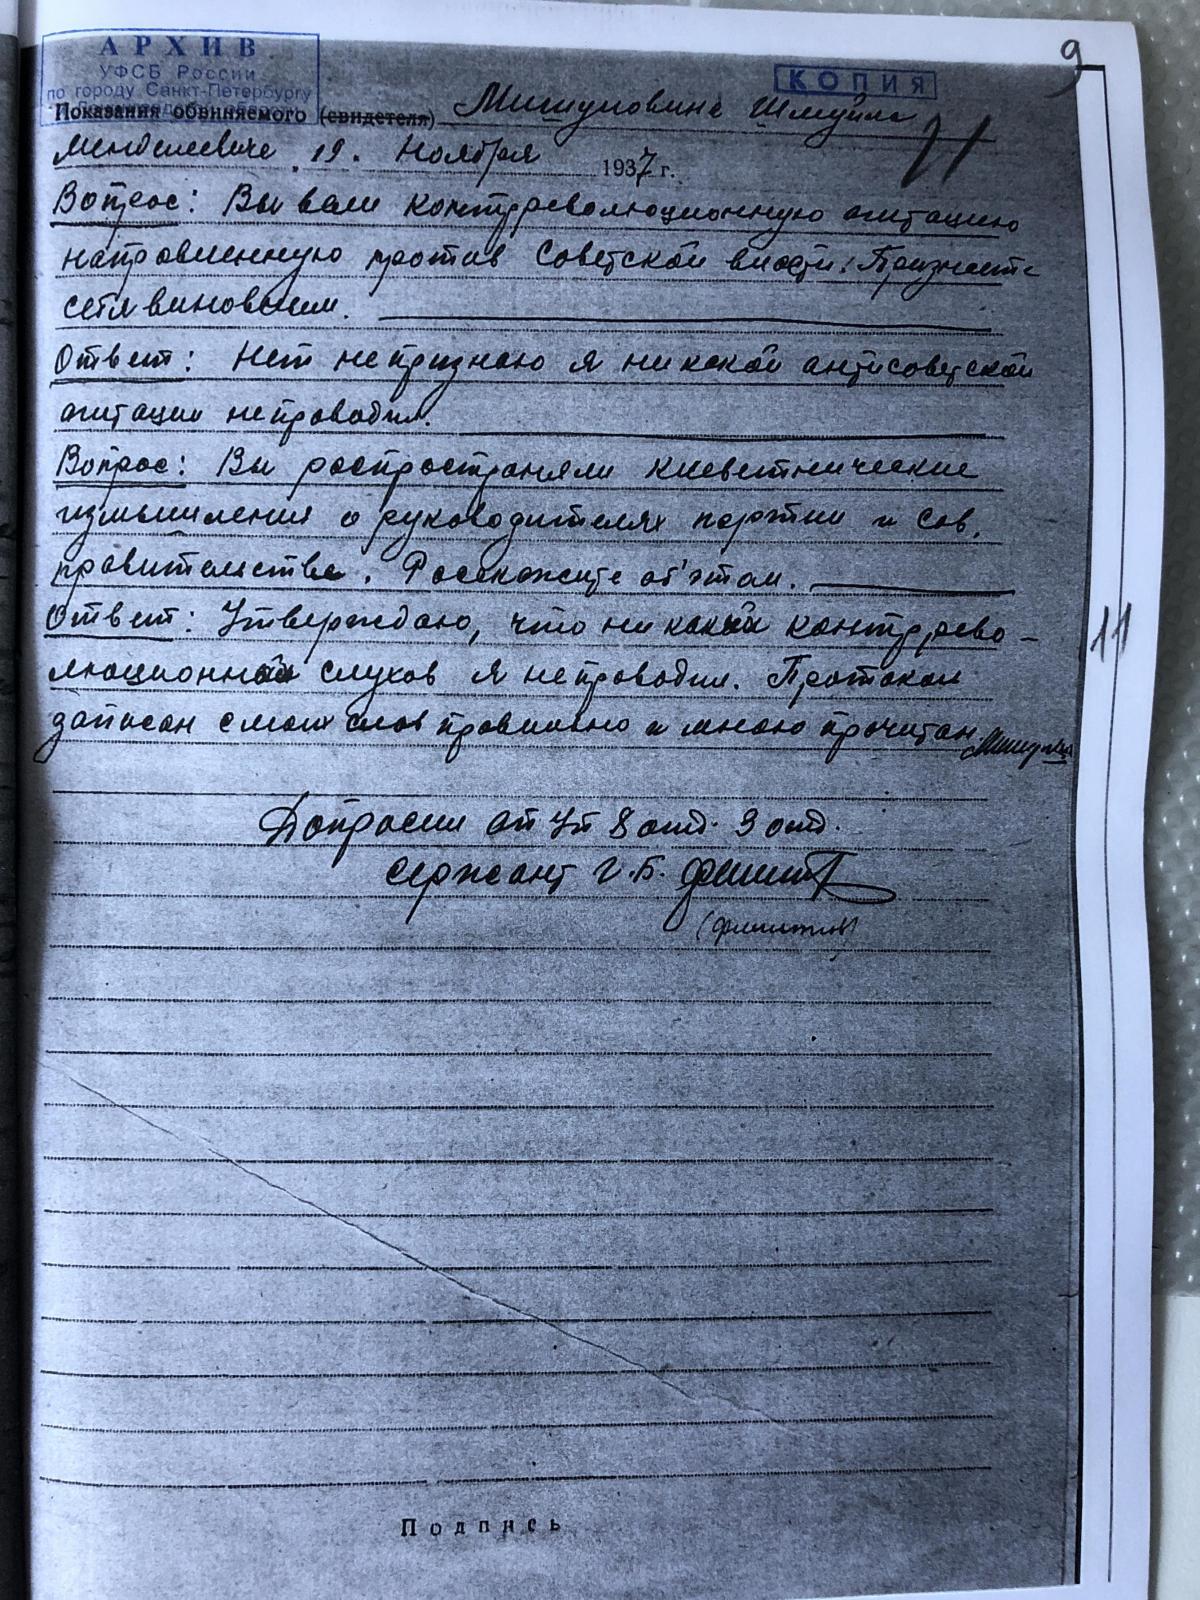 9
АРХИВ
УФСБ России
по городу Санкт-Петербургу
КОПИЯ
Показания обвиняемого (свидетеля) Мишуловина Шмуйла
Менделевича 19. Ноября 1937 г.
11
Вопрос: Вы вели контрреволюционную агитацию
направленную против Советской власти. Признаете
себя виновным.
Ответ: Нет не признаю я ни какой антисоветской
агитации не проводил.
Вопрос: Вы распространяли клеветнические
измышления о руководителях партии и Сов.
правительства. Расскажите об'этом.
Ответ: Утверждаю, что ни какой контррево-
люционной слухов я не проводил. Протокол
записан с моих слов правильно и мною прочитан.
11
Допросил оп Уп 8 отд. 3 отд.
сержант Г.Б.
Подпись